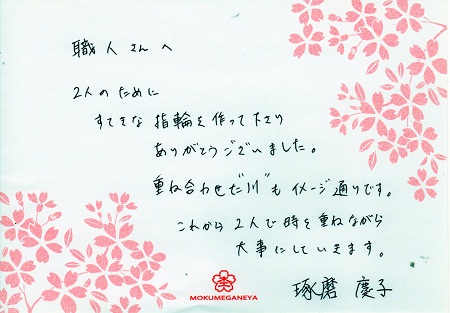 職人さんへ
2人のために
すてきな指輪を作って下さり
ありがとうございました。
重ね合わせた"川"もイメージ通りです。
これから2人で時を重ねながら
大事にしていきます。
琢磨 慶子
MOKUMEGANEYA